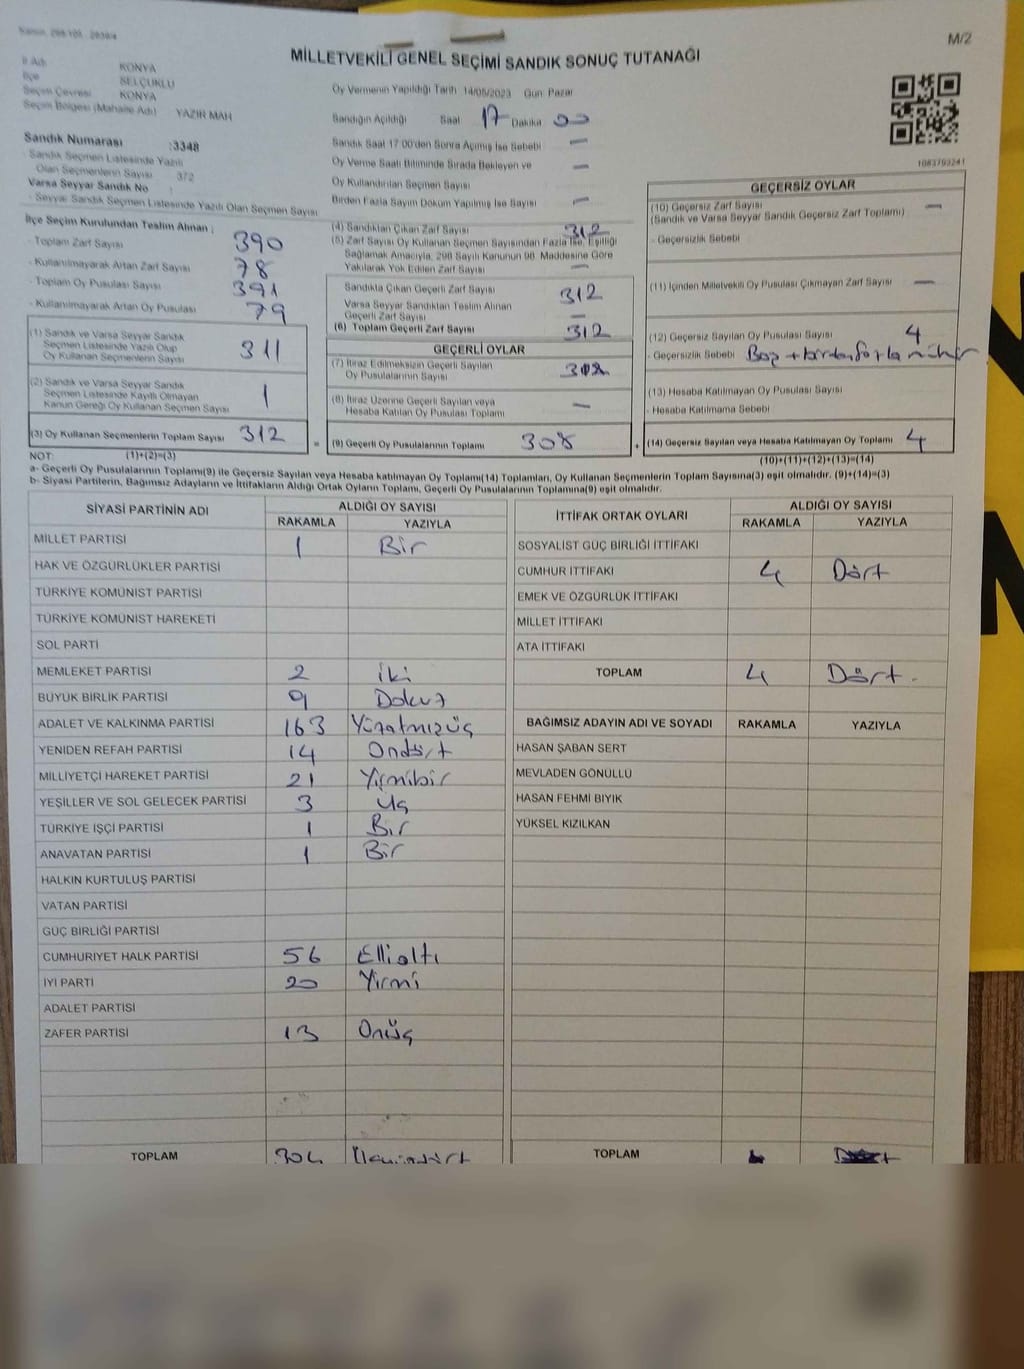 Kanun: 298/105 - 2839/4
M/2
MİLLETVEKİLİ GENEL SEÇİMİ SANDIK SONUÇ TUTANAĞI
İl Adı KONYA
İlçe SELÇUKLU
Seçim Çevresi KONYA
Seçim Bölgesi (Mahalle Adı) YAZIR MAH
Sandık Numarası :3348
Sandık Seçmen Listesinde Yazılı
Olan Seçmenlerin Sayısı 372
Varsa Seyyar Sandık No :
- Seyyar Sandık Seçmen Listesinde Yazılı Olan Seçmen Sayısı
Oy Vermenin Yapıldığı Tarih 14/05/2023 Gün: Pazar
Sandığın Açıldığı Saat 17 Dakika 00
Sandık Saat 17:00'den Sonra Açımış İse Sebebi —
Oy Verme Saati Bitiminde Sırada Bekleyen ve —
Oy Kullandırılan Seçmen Sayısı
Birden Fazla Sayım Döküm Yapılmış İse Sayısı —
1083793241
İlçe Seçim Kurulundan Teslim Alınan ;
- Toplam Zarf Sayısı 390
- Kullanılmayarak Artan Zarf Sayısı 78
- Toplam Oy Pusulası Sayısı 391
- Kullanılmayarak Artan Oy Pusulası 79
(1) Sandık ve Varsa Seyyar Sandık
Seçmen Listesinde Yazılı Olup
Oy Kullanan Seçmenlerin Sayısı 311
(2) Sandık ve Varsa Seyyar Sandık
Seçmen Listesinde Kayıtlı Olmayan
Kanun Gereği Oy Kullanan Seçmen Sayısı 1
(3) Oy Kullanan Seçmenlerin Toplam Sayısı 312
NOT: (1)+(2)=(3)
(4) Sandıktan Çıkan Zarf Sayısı 312
(5) Zarf Sayısı Oy Kullanan Seçmen Sayısından Fazla İse, Eşitliği
Sağlamak Amacıyla, 298 Sayılı Kanunun 98. Maddesine Göre
Yakılarak Yok Edilen Zarf Sayısı —
Sandıkta Çıkan Geçerli Zarf Sayısı 312
Varsa Seyyar Sandıktan Teslim Alınan
Geçerli Zarf Sayısı —
(6) Toplam Geçerli Zarf Sayısı 312
GEÇERLİ OYLAR
(7) İtiraz Edilmeksizin Geçerli Sayılan
Oy Pusulalarının Sayısı 308
(8) İtiraz Üzerine Geçerli Sayılan veya
Hesaba Katılan Oy Pusulası Toplamı —
= (9) Geçerli Oy Pusulalarının Toplamı 308
GEÇERSİZ OYLAR
(10) Geçersiz Zarf Sayısı —
(Sandık ve Varsa Seyyar Sandık Geçersiz Zarf Toplamı)
- Geçersizlik Sebebi
(11) İçinden Milletvekili Oy Pusulası Çıkmayan Zarf Sayısı —
(12) Geçersiz Sayılan Oy Pusulası Sayısı 4
- Geçersizlik Sebebi Boş + birden fazla mühür
(13) Hesaba Katılmayan Oy Pusulası Sayısı
- Hesaba Katılmama Sebebi
+ (14) Geçersiz Sayılan veya Hesaba Katılmayan Oy Toplamı 4
(10)+(11)+(12)+(13)=(14)
a- Geçerli Oy Pusulalarının Toplamı(9) ile Geçersiz Sayılan veya Hesaba katılmayan Oy Toplamı(14) Toplamları, Oy Kullanan Seçmenlerin Toplam Sayısına(3) eşit olmalıdır. (9)+(14)=(3)
b- Siyasi Partilerin, Bağımsız Adayların ve İttifakların Aldığı Ortak Oyların Toplamı, Geçerli Oy Pusulalarının Toplamına(9) eşit olmalıdır.
SİYASİ PARTİNİN ADI ALDIĞI OY SAYISI
RAKAMLA YAZIYLA
MİLLET PARTİSİ 1 Bir
HAK VE ÖZGÜRLÜKLER PARTİSİ
TÜRKİYE KOMÜNİST PARTİSİ
TÜRKİYE KOMÜNİST HAREKETİ
SOL PARTİ
MEMLEKET PARTİSİ 2 iki
BÜYÜK BİRLİK PARTİSİ 9 Dokuz
ADALET VE KALKINMA PARTİSİ 163 Yüzatmışüç
YENİDEN REFAH PARTİSİ 14 Ondört
MİLLİYETÇİ HAREKET PARTİSİ 21 Yirmibir
YEŞİLLER VE SOL GELECEK PARTİSİ 3 Üç
TÜRKİYE İŞÇİ PARTİSİ 1 Bir
ANAVATAN PARTİSİ 1 Bir
HALKIN KURTULUŞ PARTİSİ
VATAN PARTİSİ
GÜÇ BİRLİĞİ PARTİSİ
CUMHURİYET HALK PARTİSİ 56 Ellialtı
İYİ PARTİ 20 Yirmi
ADALET PARTİSİ
ZAFER PARTİSİ 13 Onüç
TOPLAM 304 Üçyüzdört
İTTİFAK ORTAK OYLARI ALDIĞI OY SAYISI
RAKAMLA YAZIYLA
SOSYALİST GÜÇ BİRLİĞİ İTTİFAKI
CUMHUR İTTİFAKI 4 Dört
EMEK VE ÖZGÜRLÜK İTTİFAKI
MİLLET İTTİFAKI
ATA İTTİFAKI
TOPLAM 4 Dört.
BAĞIMSIZ ADAYIN ADI VE SOYADI RAKAMLA YAZIYLA
HASAN ŞABAN SERT
MEVLADEN GÖNÜLLÜ
HASAN FEHMİ BIYIK
YÜKSEL KIZILKAN
TOPLAM